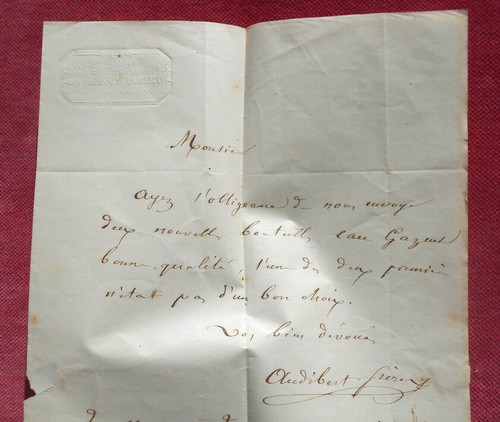 Monsieur
Ayez l'obligeance de nous envoyer
deux nouvelles bouteilles eau Gazeuse
bonne qualité, l'une des deux premières
n'était pas d'un bon choix.
Vos bien dévoués
Audibert frères